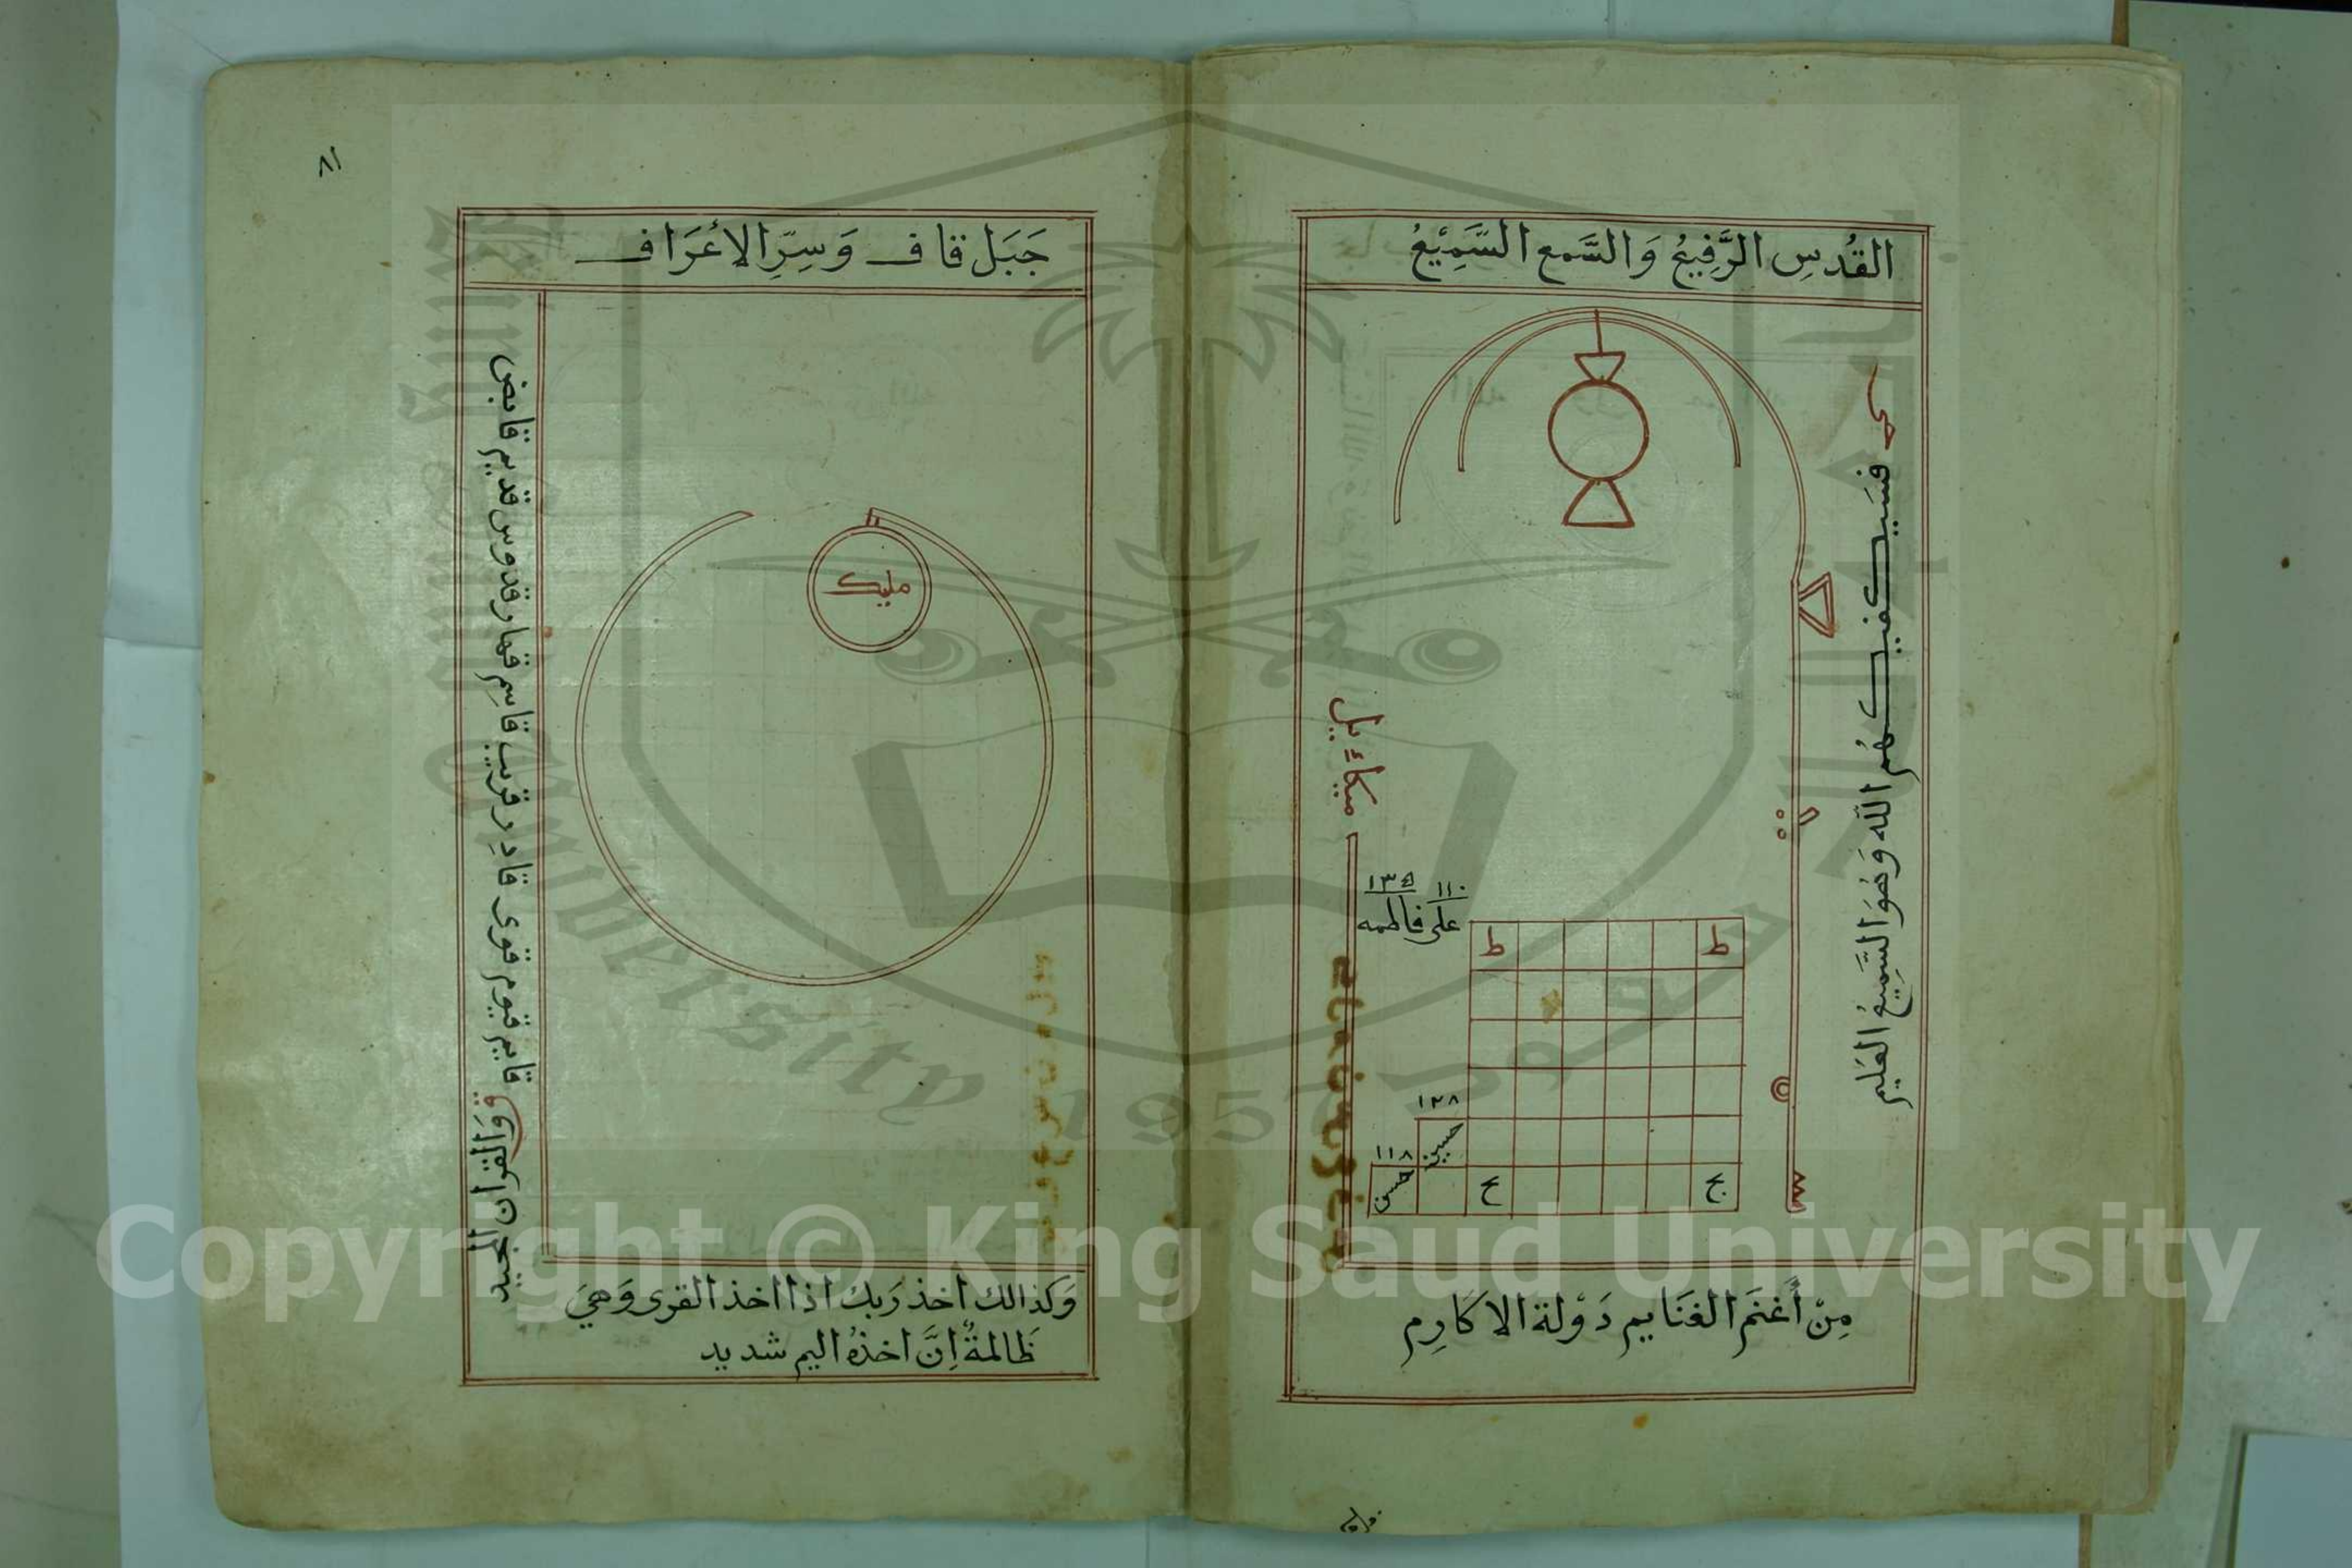 القُدسِ الرَّفِيعُ وَالسَّمع السَّمِيْعُ
حى
فسَيكفيكهُم الله وَهُوَ السَّمِيعُ العَليم
ميكاءيل
١١٠
على فاطمه
ط
ط
١٣٨
حسين
١١٨
حسن
ع
مِنْ أَغنَم الغنَايم دَوْلة الاكَارِم
٨١
جَبَل قاف وَسِرِّ الأعْرَاف
مليك
ق وَالقران المجيد
قايم قيوم قوى قادِر قريب قاسِم قهار قدوس قديم قابض
وَكذالك اخذ رَبك اذا اخذ القرى وَهيَ
ظَالمةٌ اِنَّ اخذهُ اليم شديد
Copyright © King Saud University
University 1957